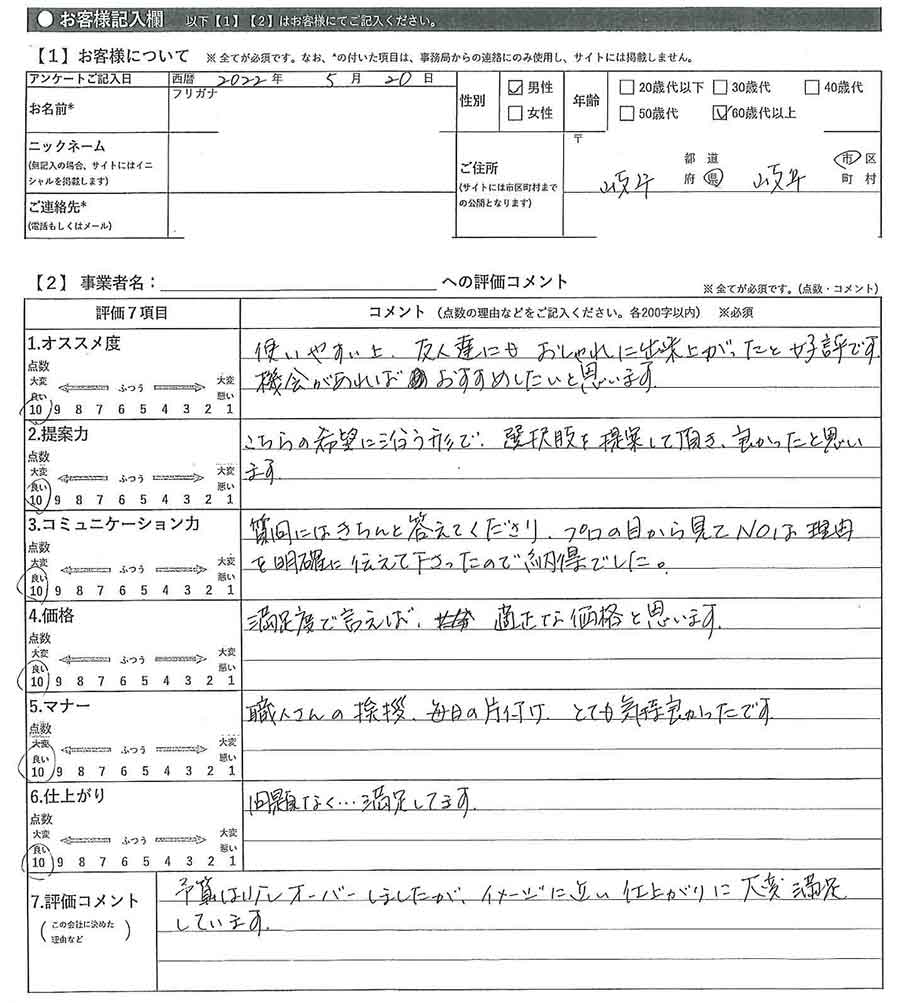 ● お客様記入欄 以下【1】【2】はお客様にてご記入ください。
【1】お客様について ※全てが必須です。なお、*の付いた項目は、事務局からの連絡にのみ使用し、サイトには掲載しません。
アンケートご記入日 西暦 2022 年 5 月 20 日
お名前* フリガナ
性別 ☑男性 □女性
年齢 □20歳代以下 □30歳代 □40歳代
□50歳代 ☑60歳代以上
ニックネーム
(無記入の場合、サイトにはイニ
シャルを掲載します)
ご連絡先*
(電話もしくはメール)
ご住所
(サイトには市区町村まで
の公開となります)
〒
岐阜 都道府県 岐阜 市区町村
【2】事業者名: への評価コメント ※全てが必須です。(点数・コメント)
評価7項目 コメント (点数の理由などをご記入ください。各200字以内) ※必須
1.オススメ度
点数
大変良い ふつう 大変悪い
10 9 8 7 6 5 4 3 2 1
使いやすい上、友人達にも おしゃれに出来上がったと好評です
機会があれば おすすめしたいと思います。
2.提案力
点数
大変良い ふつう 大変悪い
10 9 8 7 6 5 4 3 2 1
こちらの希望に沿う形で、選択肢を提案して頂き、良かったと思い
ます。
3.コミュニケーション力
点数
大変良い ふつう 大変悪い
10 9 8 7 6 5 4 3 2 1
質問にはきちんと答えてくださり、プロの目から見てNOは理由
を明確に伝えて下さったので納得でした。
4.価格
点数
大変良い ふつう 大変悪い
10 9 8 7 6 5 4 3 2 1
満足度で言えば、 適正な価格と思います。
5.マナー
点数
大変良い ふつう 大変悪い
10 9 8 7 6 5 4 3 2 1
職人さんの挨拶、毎日の片付け、とても気持良かったです。
6.仕上がり
点数
大変良い ふつう 大変悪い
10 9 8 7 6 5 4 3 2 1
問題なく…満足してます。
7.評価コメント
(この会社に決めた
理由など)
予算は少しオーバーしましたが、イメージに近い仕上がりに大変満足
しています。